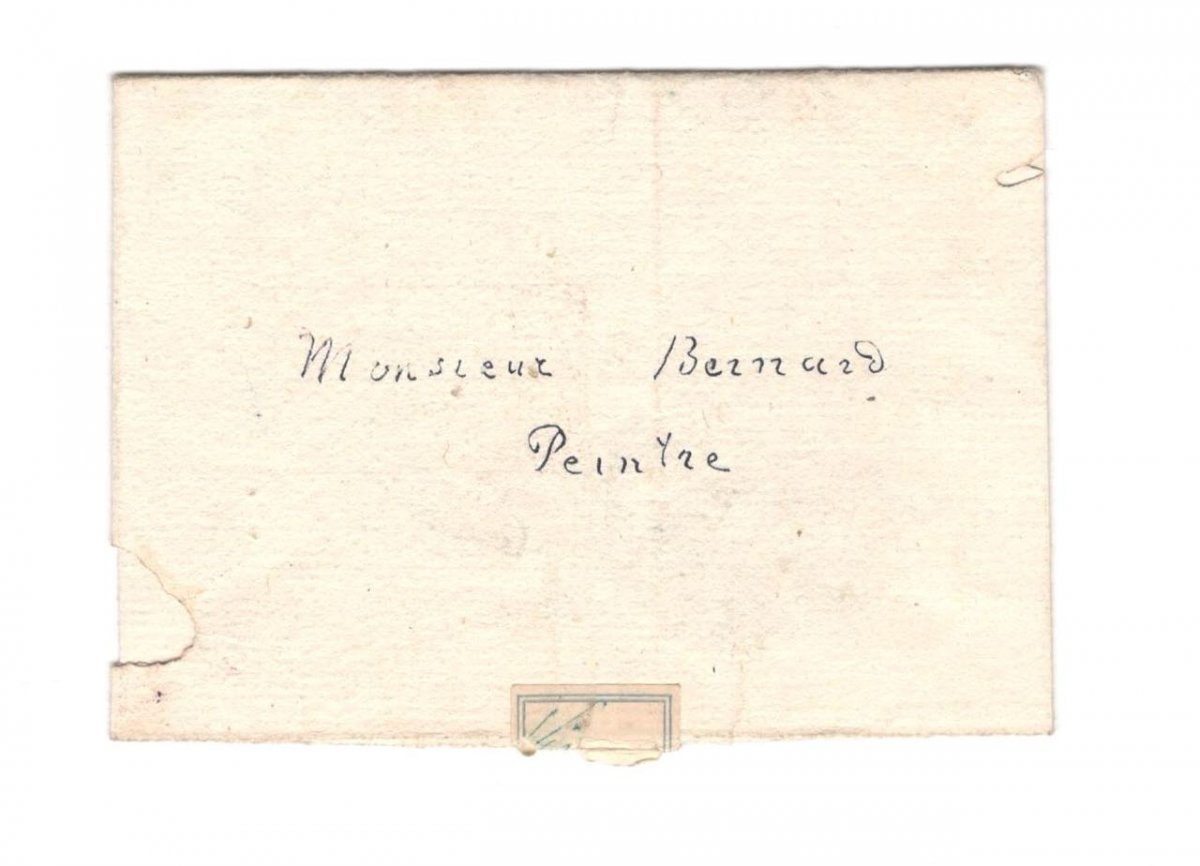 Monsieur Bernard
Peintre